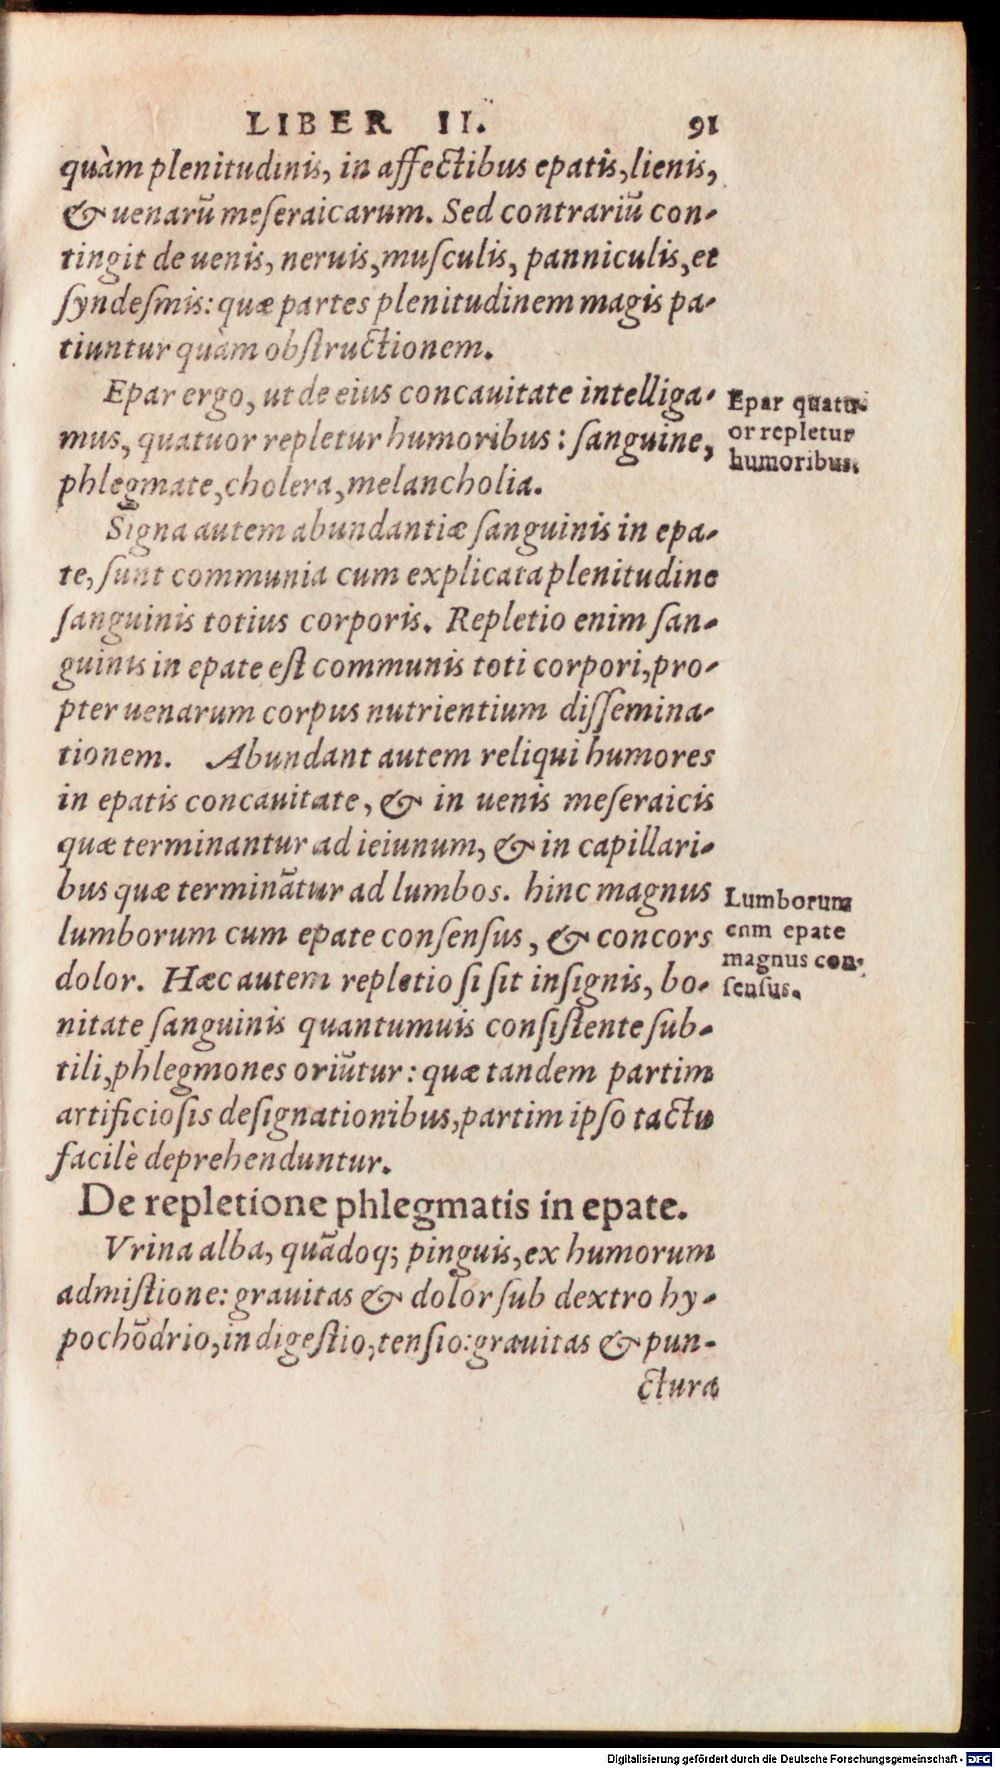 LIBER II. 91
quàm plenitudinis, in affectibus epatis, lienis,
& uenarũ meſeraicarum. Sed contrariũ con-
tingit de uenis, neruis, muſculis, panniculis, et
ſyndeſmis: quæ partes plenitudinem magis pa-
tiuntur quàm obſtructionem.
Epar ergo, ut de eius concauitate intelliga-
mus, quatuor repletur humoribus: ſanguine,
phlegmate, cholera, melancholia.
Epar quatu-
or repletur
humoribus.
Signa autem abundantiæ ſanguinis in epa-
te, ſunt communia cum explicata plenitudine
ſanguinis totius corporis. Repletio enim ſan-
guinis in epate eſt communis toti corpori, pro-
pter uenarum corpus nutrientium diſſemina-
tionem. Abundant autem reliqui humores
in epatis concauitate, & in uenis meſeraicis
quæ terminantur ad ieiunum, & in capillari-
bus quæ terminãtur ad lumbos. hinc magnus
lumborum cum epate conſenſus, & concors
dolor. Hæc autem repletio ſi ſit inſignis, bo-
nitate ſanguinis quantumuis conſiſtente ſub-
tili, phlegmones oriũtur: quæ tandem partim
artificioſis deſignationibus, partim ipſo tactu
facilè deprehenduntur.
Lumborum
cum epate
magnus con-
ſenſus.
De repletione phlegmatis in epate.
Vrina alba, quãdoq; pinguis, ex humorum
admiſtione: grauitas & dolor ſub dextro hy-
pochõdrio, indigeſtio, tenſio: grauitas & pun-
ctura
Digitalisierung gefördert durch die Deutsche Forschungsgemeinschaft - DFG